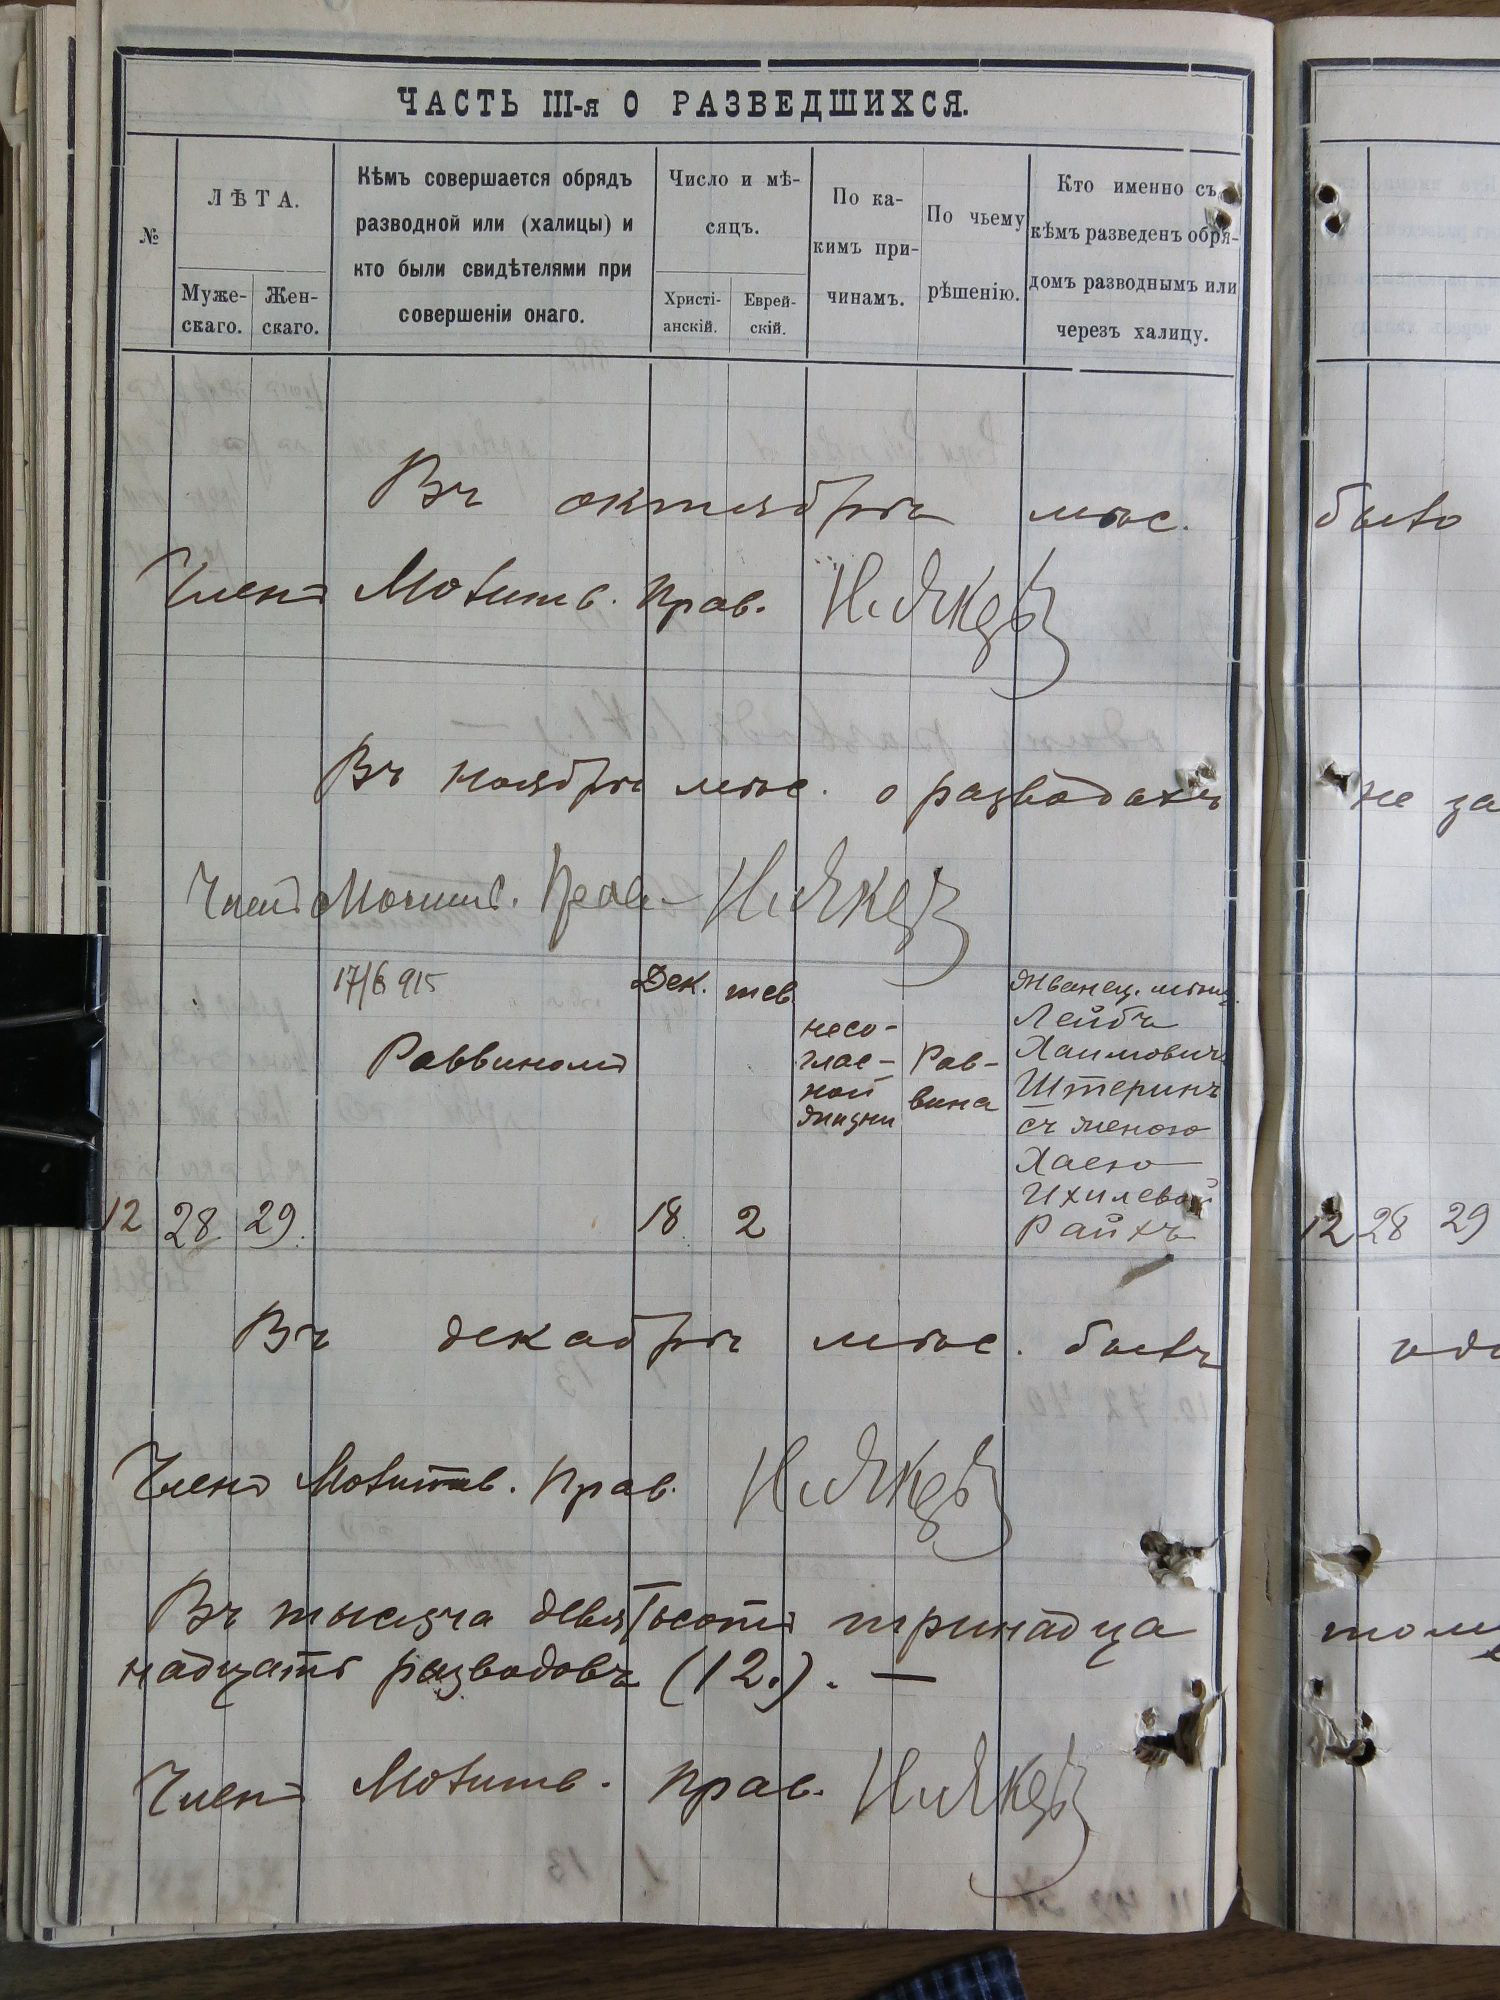 ЧАСТЬ III-я О РАЗВЕДШИХСЯ.
№
ЛѢТА.
Муже-
скаго.
Жен-
скаго.
Кѣмъ совершается обрядъ
разводной или (халицы) и
кто были свидѣтелями при
совершеніи онаго.
Число и мѣ-
сяцъ.
Христі-
анскій.
Еврей-
скій.
По ка-
кимъ при-
чинамъ.
По чьему
рѣшенію.
Кто именно съ
кѣмъ разведенъ обря-
домъ разводнымъ или
черезъ халицу.
Въ октябрѣ мѣс. было
Членъ Молитв. Прав.
Въ ноябрѣ мѣс. о разводахъ не за
Членъ Молитв. Прав.
17/6 915
Раввиномъ
Дек.
тев.
несо-
глас-
ной
жизни
Рав-
вина
Жванец. мѣщ.
Лейбъ
Хаимовичъ
Штеринъ
съ женою
Хаею
Ихилевой
Райхъ
12 28 29. 18 2
12 28 29
Въ декабрѣ мѣс. былъ одι
Членъ Молитв. Прав.
Въ тысяча девятьсотъ тринадца томъ
надцать разводовъ (12.). —
Членъ Молитв. Прав.